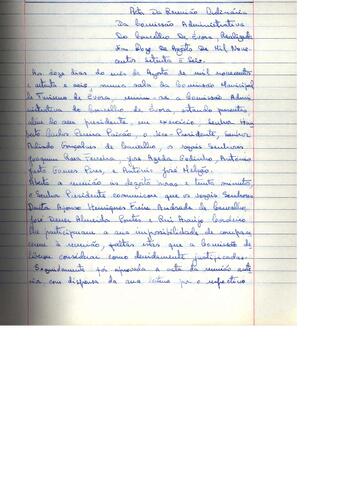 Acta Da Reunião Ordinária
Da Comissão Administrativa
Do Concelho De Évora, Realizada
Em Doze De Agosto De Mil Nove-
centos Setenta E Seis.
Aos doze dias do mês de Agosto de mil novecentos
e setenta e seis, numa sala da Comissão Municipal
de Turismo de Évora, reuniu-se a Comissão Admi-
nistrativa do Concelho de Évora, estando presentes
além do seu presidente, em exercício, Senhor Hum-
berto Carlos Pereira Paixão, o Vice-Presidente, Senhor
Alindo Gonçalves de Carvalho, os vogais Senhores
Joaquim Rosa Ferreira, José Azeda Godinho, António
José Gomes Pires, e António José
Aberta a reunião às dezoito horas e trinta minutos,
o Senhor Presidente comunicou que os vogais Senhores
Duarte Afonso Henriques Freire Andrade de Carvalho,
José Almeida Pontes e Rui Araújo Cordeiro
lhe participaram a sua impossibilidade de compare-
cerem à reunião, faltas estas que a Comissão de-
liberou considerar como devidamente justificadas.
Seguidamente foi aprovada a acta da reunião ante-
rior com dispensa da sua leitura por o respectivo